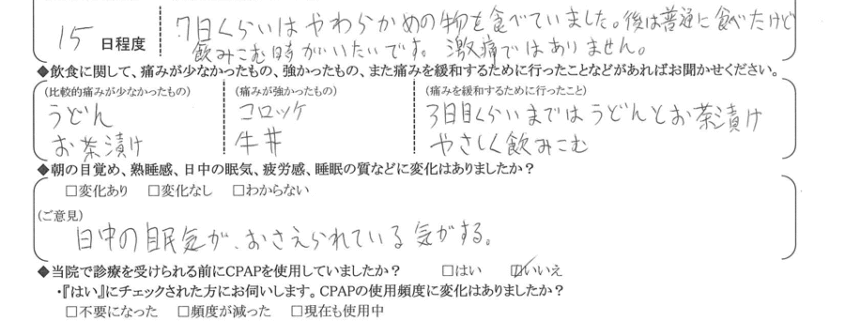 15 日程度
7日くらいは やわらかめの物を食べていました。後は普通に食べたけど
飲みこむ時がいたいです。 激痛ではありません。
◆飲食に関して、痛みが少なかったもの、強かったもの、また痛みを緩和するために行ったことなどがあればお聞かせください。
(比較的痛みが少なかったもの) (痛みが強かったもの) (痛みを緩和するために行ったこと)
うどん コロッケ 3日目くらいまではうどんとお茶漬け
お茶漬け 牛丼 やさしく飲みこむ
◆朝の目覚め、熟睡感、日中の眠気、疲労感、睡眠の質などに変化はありましたか?
□変化あり □変化なし □わからない
(ご意見)
日中の眠気が、おさえられている気がする。
◆当院で診療を受けられる前にCPAPを使用していましたか? □はい ☑いいえ
・『はい』にチェックされた方にお伺いします。CPAPの使用頻度に変化はありましたか?
□不要になった □頻度が減った □現在も使用中